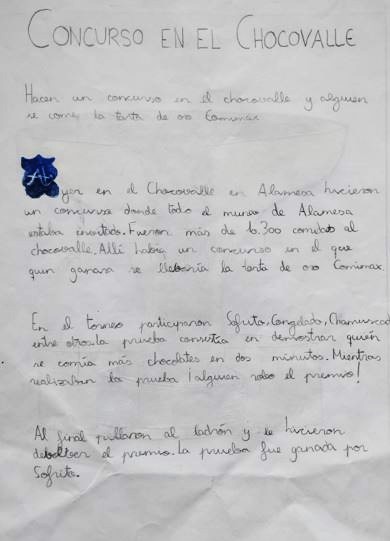 CONCURSO EN EL CHOCOVALLE
Hacen un concurso en el chocovalle y alguien
se come la tarta de oro Comimax
Ayer en el Chocovalle en Alamesa hicieron
un concurso donde todo el mundo de Alamesa
estaba invitado. Fueron más de 6.300 comidas al
chocovalle. Allí había un concurso en el que
quien ganara se llebaría la tarta de oro Comimax.
En el torneo participaron Sofrito, Congelado, Chamuscado
entre otros. La prueba consistía en demostrar quién
se comía más chocolates en dos minutos. Mientras
realizaban la prueba ¡alguien robo el premio!
Al final pillaron al ladrón y le hicieron
el premio. La prueba fue ganada por
Sofrito.